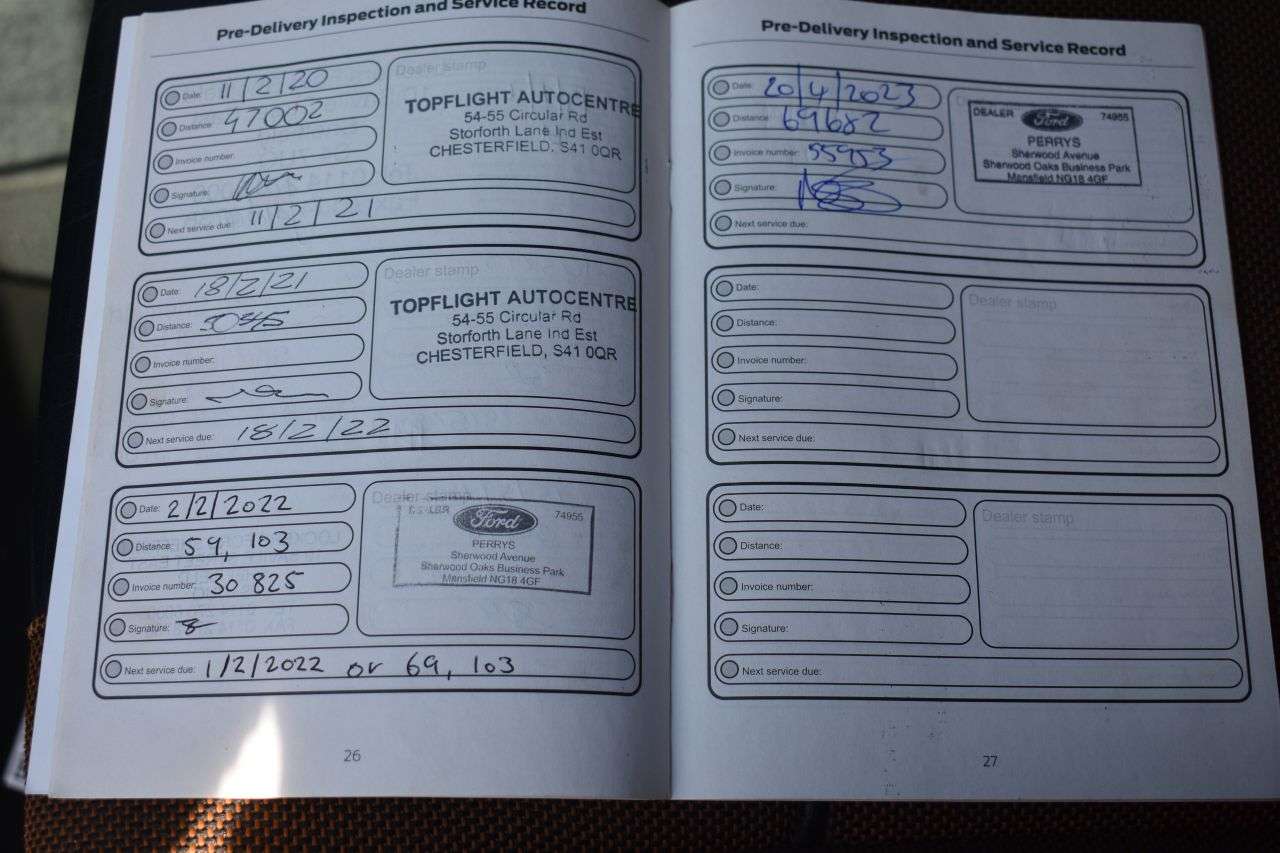 Pre-Delivery Inspection and Service Record
Date: 11/2/20
Distance: 47002
Invoice number:
Signature:
Next service due: 11/2/21
Dealer stamp
TOPFLIGHT AUTOCENTRE
54-55 Circular Rd
Storforth Lane Ind Est
CHESTERFIELD, S41 0QR
Date: 18/2/21
Distance:
Invoice number:
Signature:
Next service due: 18/2/22
Dealer stamp
TOPFLIGHT AUTOCENTRE
54-55 Circular Rd
Storforth Lane Ind Est
CHESTERFIELD, S41 0QR
Date: 2/2/2022
Distance: 59, 103
Invoice number: 30 825
Signature:
Next service due: 1/2/2022 or 69, 103
Dealer stamp
Ford 74955
PERRYS
Sherwood Avenue
Sherwood Oaks Business Park
Mansfield NG18 4GF
26
Pre-Delivery Inspection and Service Record
Date: 20/4/2023
Distance: 69682
Invoice number: 55953
Signature:
Next service due:
DEALER Ford 74955
PERRYS
Sherwood Avenue
Sherwood Oaks Business Park
Mansfield NG18 4GF
Date:
Distance:
Invoice number:
Signature:
Next service due:
Dealer stamp
Date:
Distance:
Invoice number:
Signature:
Next service due:
Dealer stamp
27